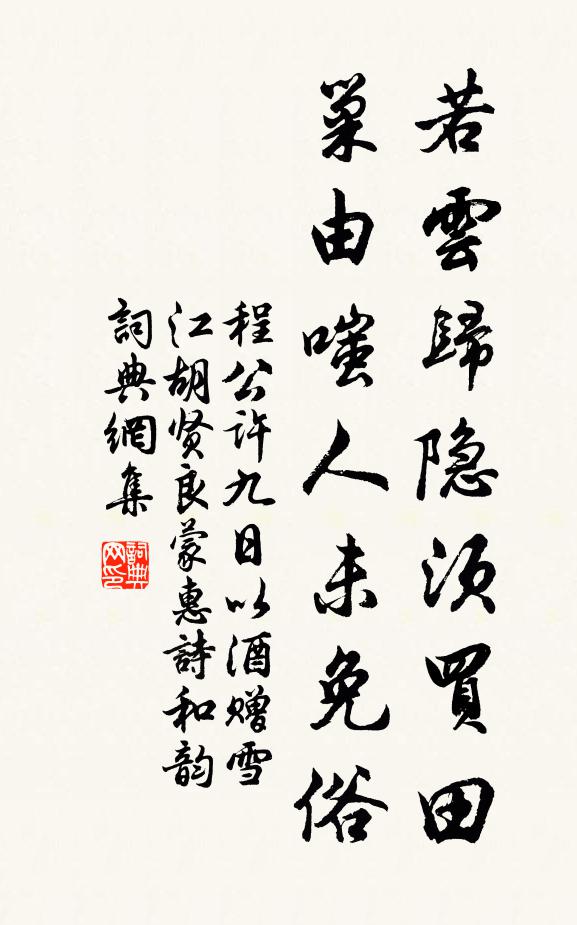 若雲歸隐須買田
巢由嗤人未免俗
程公许九日以酒赠雪
江胡贤良蒙惠詩和韵
詞典網集
詞典
网印